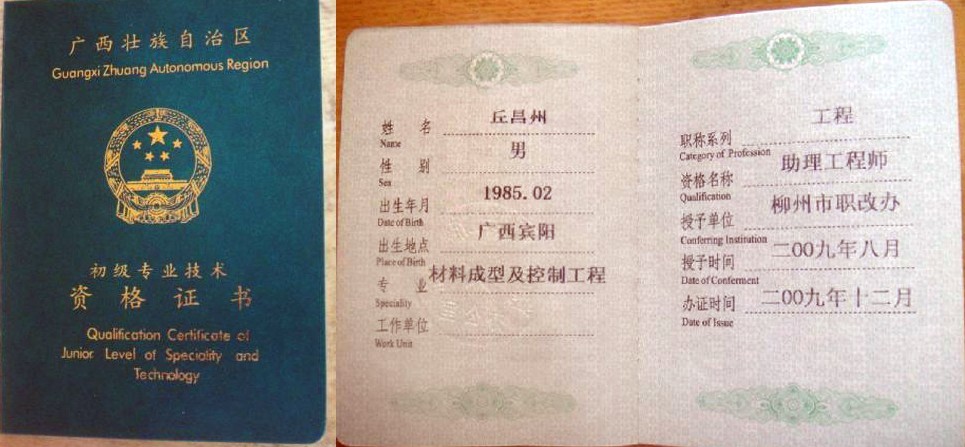 广西壮族自治区
Guangxi Zhuang Autonomous Region
初级专业技术
资格证书
Qualification Certificate of
Junior Level of Speciality and
Technology
姓名 丘昌州
Name
性别 男
Sex
出生年月 1985.02
Date of Birth
出生地点 广西宾阳
Place of Birth
专业 材料成型及控制工程
Speciality
工作单位
Work Unit
职称系列 工程
Category of Profession
资格名称 助理工程师
Qualification
授予单位 柳州市职改办
Conferring Institution
授予时间 二00九年八月
Date of Conferment
办证时间 二00九年十二月
Date of Issue